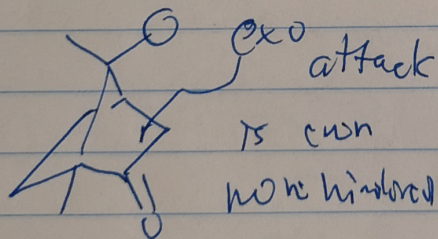 exo
attack
is even
more hindered
O